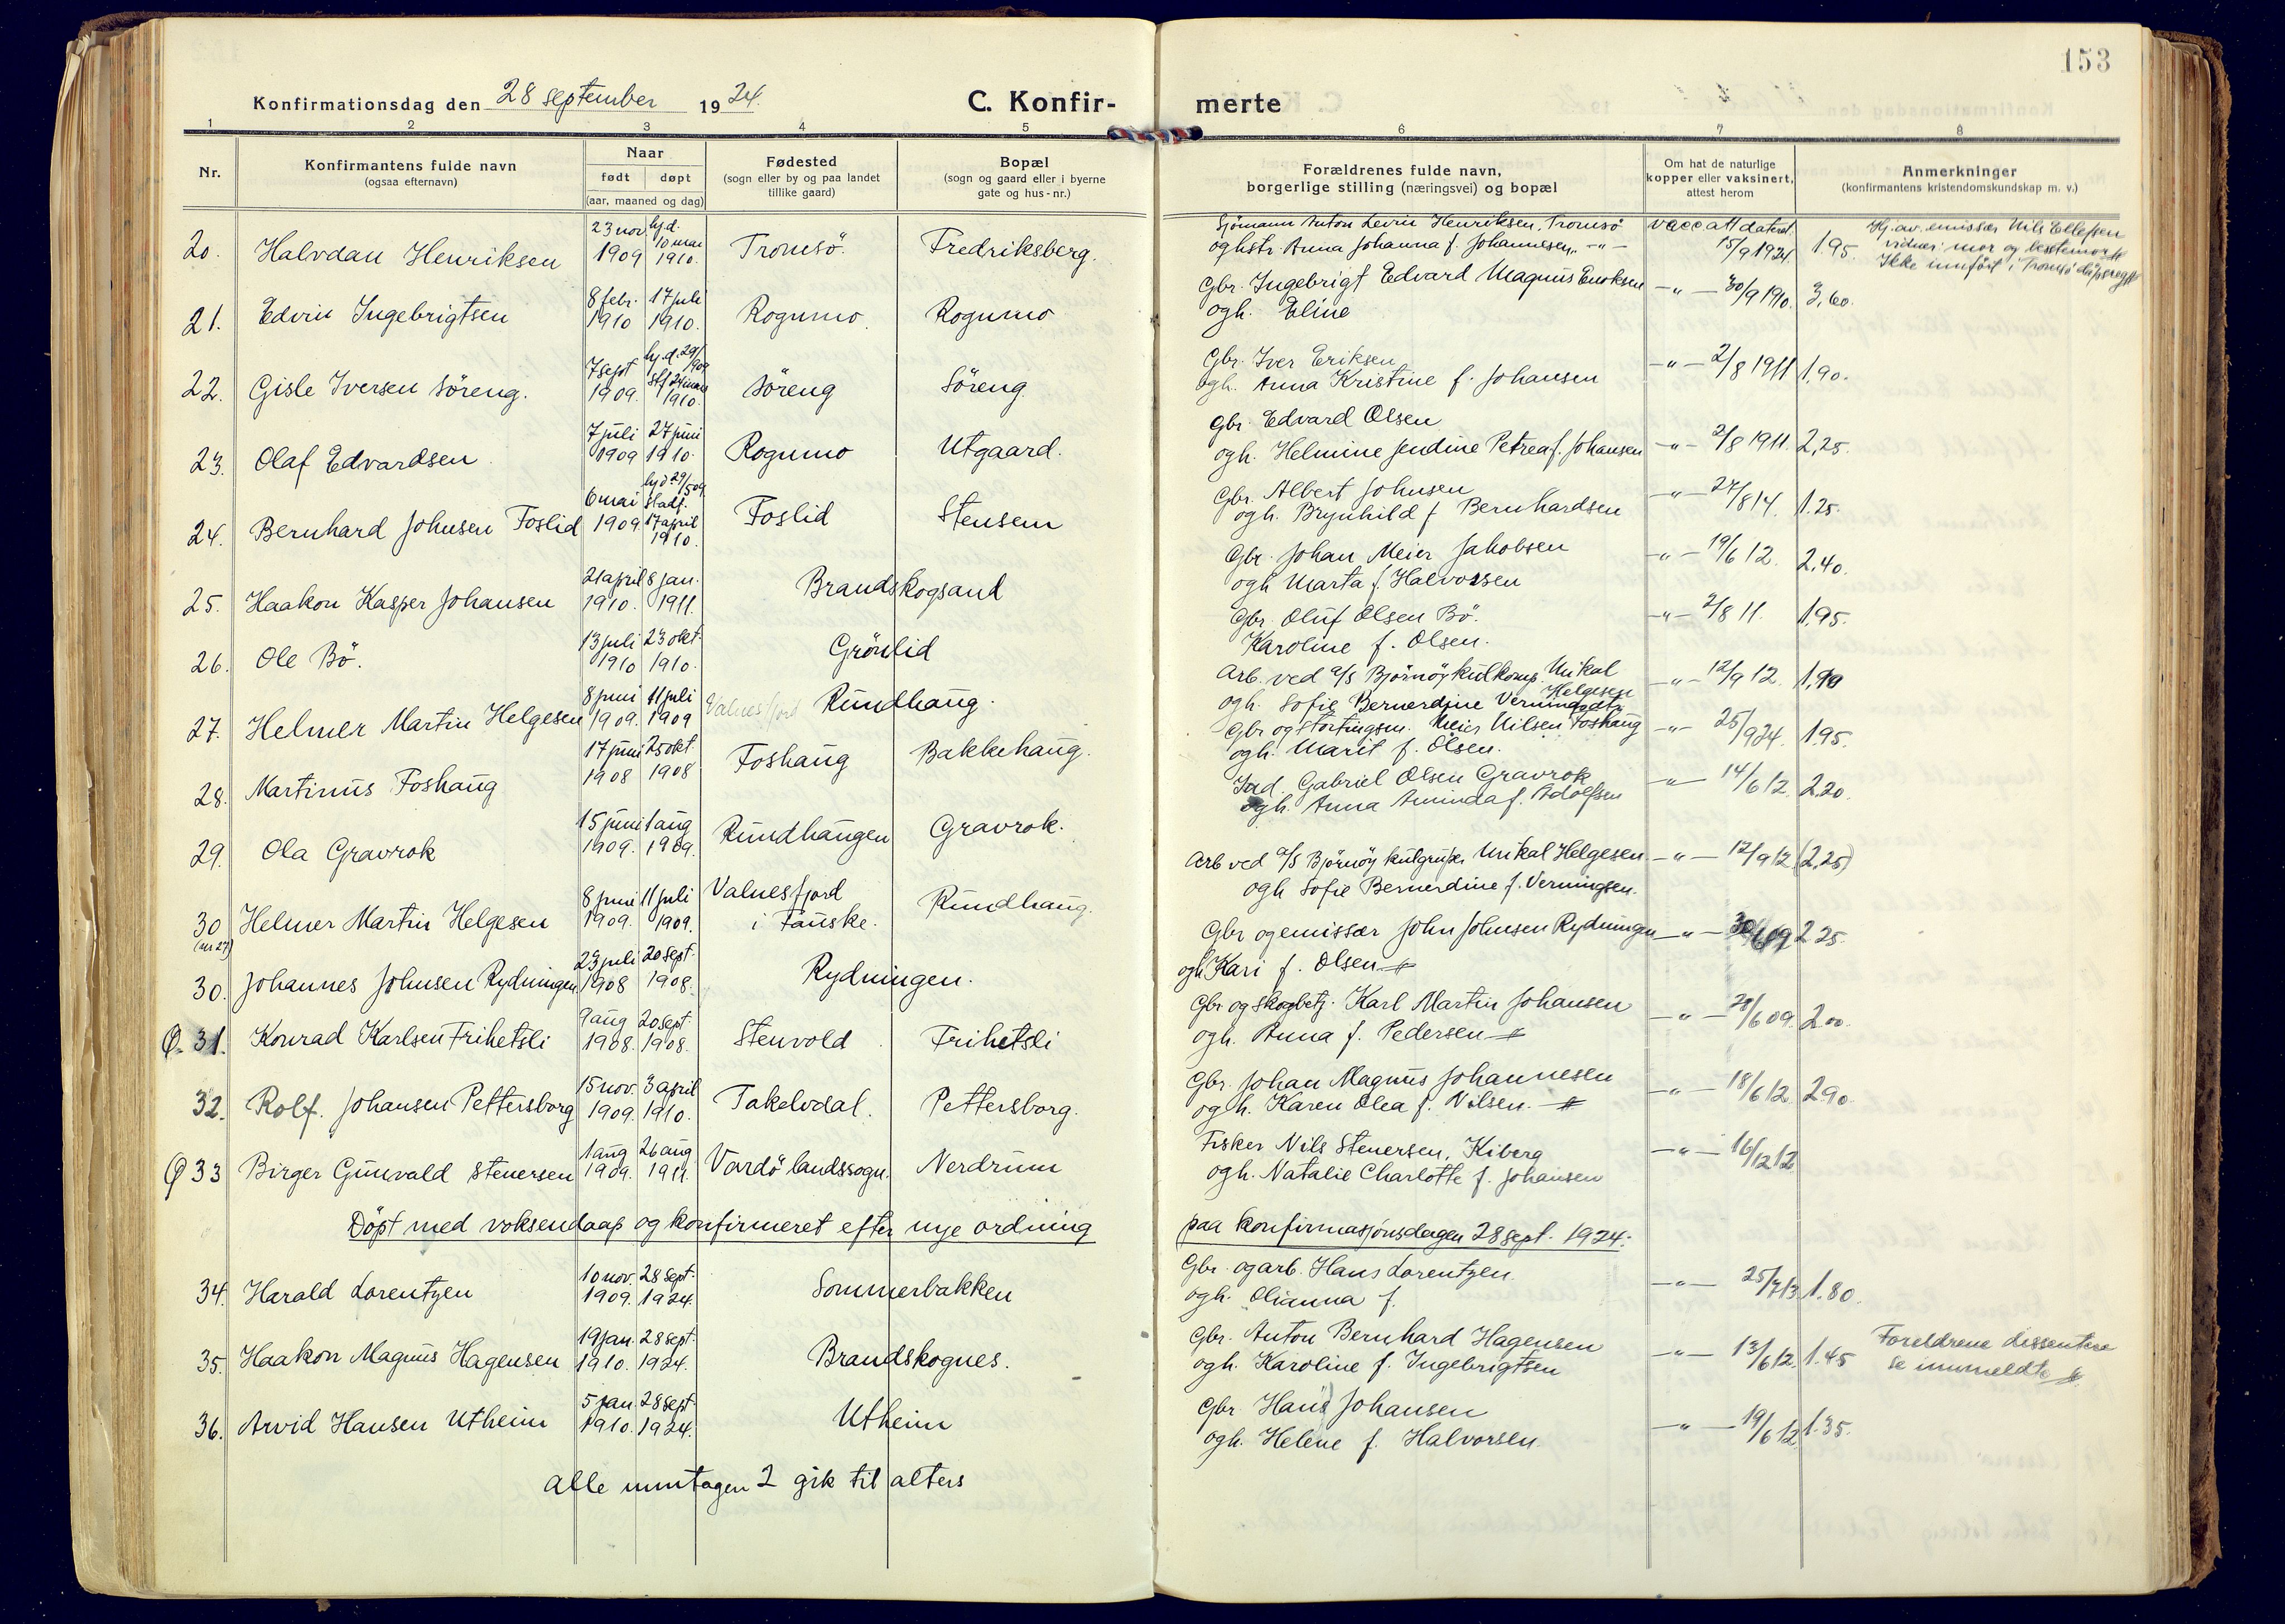 153
Konfirmationsdag den 28 september 1924. C. Konfir- merte
1 2 3 4 5 6 7 8
Nr. Konfirmantens fulde navn (ogsaa efternavn) Naar født døpt (aar, maaned og dag) Fødested (sogn eller by og paa landet tillike gaard) Bopæl (sogn og gaard eller i byerne gate og hus-nr.) Forældrenes fulde navn, borgerlige stilling (næringsvei) og bopæl Om hat de naturlige kopper eller vaksinert, attest herom Anmerkninger (konfirmantens kristendomskundskap m. v.)
20. Halvdan Henriksen 23 nov 1909 hj.d. 10 mai 1910. Tromsö. Fredriksberg. Sjömann Anton Levin Henriksen, Tromsö vacc att dateret
oghstr. Anna Johanna f. Johannesen, -"- 15/9 1924. 1.95. Hj. av. emissær Nils Ellefsen
vidner: mor og bestemor
Ikke innfört i Tromsö dåpsreg.
21. Edvin Ingebrigtsen 8 febr. 1910 17 juli 1910. Rognmo. Rognmo Gbr. Ingebrigt Edvard Magnus Enoksen -"- 30/9 190. 3,60.
ogh. Eline
22. Gisle Iversen Söreng. 7 sept 1909. hj.d. 29/ 1909 stf 24 mars 1910. Söreng Söreng. Gbr. Iver Eriksen -"- 2/8 1911 1,90.
ogh. Anna Kristine f. Johansen
23. Olaf Edvardsen 7 juli 1909 27 juni 1910. Rognmo Utgaard. Gbr. Edvard Olsen
ogh. Helmine Jendine Petrea f. Johansen -"- 2/8 1911. 2,25.
24. Bernhard Johnsen Foslid 6 mai 1909 hjd 29/5 09. stadf. 17 april 1910. Foslid Stensem Gbr. Albert Johnsen -"- 27/8 14. 1.25.
ogh. Brynhild f Bernhardsen
25. Haakon Kasper Johansen 21 april 1910. 8 jan. 1911. Brandskogsand Gbr. Johan Meier Jakobsen -"- 19/6 12. 2.40.
ogh Marta f. Halvorsen
26. Ole Bö. 13 juli 1910 23 okt. 1910. Grönlid Gbr. Oluf Olsen Bö. -"- 2/8 11. 1,95.
Karoline f. Olsen.
27. Helmer Martin Helgesen 8 juni 1909. 11 juli 1909 Valnesfjord Rundhaug. Arb. ved a/s Björnöy kulkomp. Unikal Helgesen -"- 12/9 12. 1,90
ogh. Sofie Bernerdine
28. Martinus Foshaug 17 juni 1908 25 okt. 1908 Foshaug Bakkehaug. Gbr og stortingsm. Meier Nilsen Foshaug -"- 25/9 24. 1.95.
ogh. Marit f. Olsen.
29. Ola Gravrok 15 juni 1909. 1 aug 1909. Rundhaugen Gravrok. Ind. Gabriel Olsen Gravrok -"- 14/6 12. 2.20.
ogh. Anna Aminda f. Adolfsen
30 (nr 27) Helmer Martin Helgesen 8 juni 1909. 11 juli 1909. Valnesfjord i Fauske. Rundhaug. Arb ved a/s Björnöy kulgruber Unikal Helgesen -"- 12/9 12 (2,25)
ogh Sofie Bernerdine f. Verningsen.
30. Johannes Johnsen Rydningen 23 juli 1908 20 sept. 1908. Rydningen. Gbr og emissær John Johnsen Rydningen -"- 30/6 09 2 25.
ogh Kari f. Olsen
Ø. 31. Konrad Karlsen Frihetsli 9 aug 1908. 20 sept. 1908. Stenvold Frihetsli Gbr og skogbetj. Karl Martin Johansen -"- 29/6 09. 2.00.
ogh. Anna f. Pedersen
32. Rolf. Johansen Pettersborg 15 nov. 1909. 3 april 1910. Takelvdal. Pettersborg. Gbr. Johan Magnus Johannesen -"- 18/6 12 2.90.
ogh. Karen Olea f. Nilsen.
Ø 33 Birger Gunvald Stenersen 1 aug 1909. 26 aug 1911. Vardö landssogn. Nerdrum Fisker Nils Stenersen, Kiberg -"- 16/12 12
ogh. Natalie Charlotte f. Johansen
Döpt med voksendaap og konfirmeret efter nye ordning paa konfirmasjonsdagen 28 sept. 1924:
34. Harald Lorentzen 10 nov. 1909. 28 sept. 1924. Sommerbakken Gbr. og arb. Hans Lorentzen. -"- 25/7 13 1.80.
ogh. Olianna f.
35. Haakon Magnus Hagensen 19 jan. 1910. 28 sept. 1924. Brandskognes. Gbr. Anton Bernhard Hagensen -"- 13/6 12. 1.45 Foreldrene dissentere
ogh. Karoline f. Ingebrigtsen se innmeldte
36. Arvid Hansen Utheim 5 jan. 1910. 28 sept. 1924. Utheim Gbr. Hans Johansen -"- 19/6 12 1.35.
ogh. Helene f. Halvorsen
alle unntagen 2 gik til alters